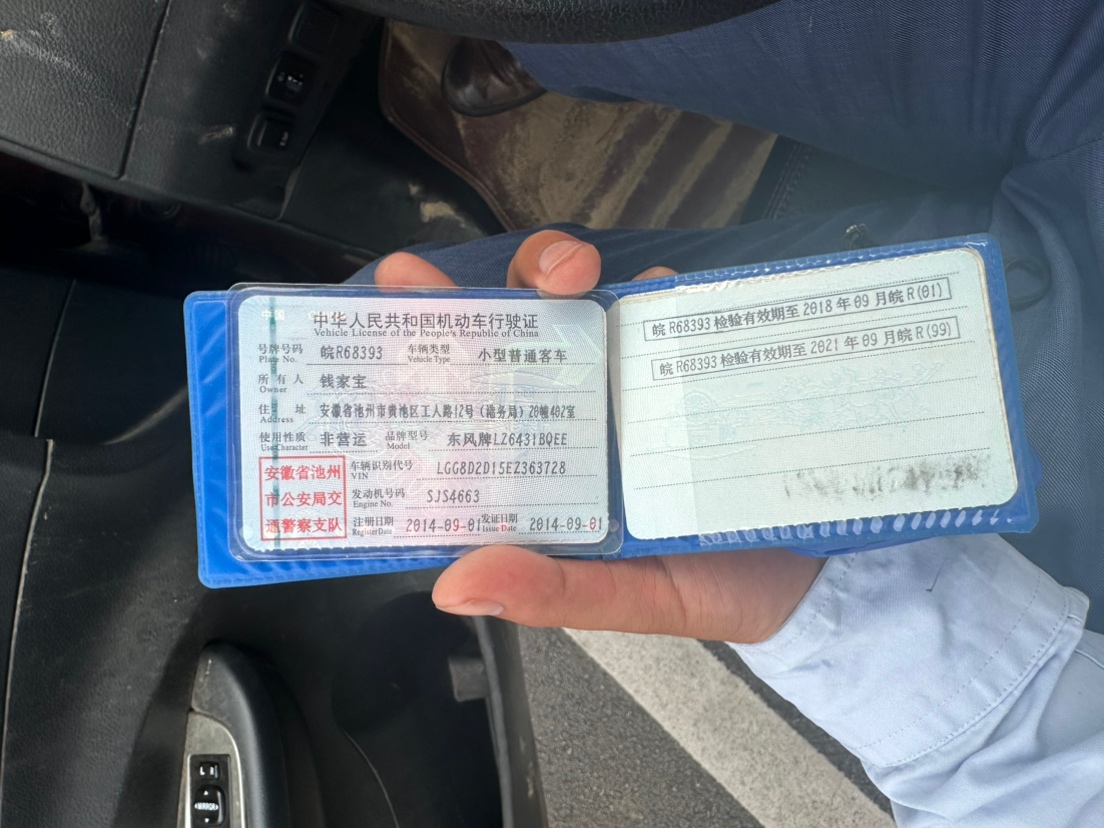 中华人民共和国机动车行驶证
Vehicle License of the People's Republic of China
号牌号码 皖R68393 车辆类型 小型普通客车
Plate No. Vehicle Type
所有人 钱家宝
Owner
住址 安徽省池州市贵池区工人路12号(港务局)20幢402室
Address
使用性质 非营运 品牌型号 东风牌LZ6431BQEE
Use Character Model
安徽省池州
市公安局交
通警察支队
车辆识别代号 LGG8D2D15EZ363728
VIN
发动机号码 SJS4663
Engine No.
注册日期 2014-09-01 发证日期 2014-09-01
Register Date Issue Date
皖R68393检验有效期至2018年09月皖R(01)
皖R68393检验有效期至2021年09月皖R(99)
L R
MIRROR